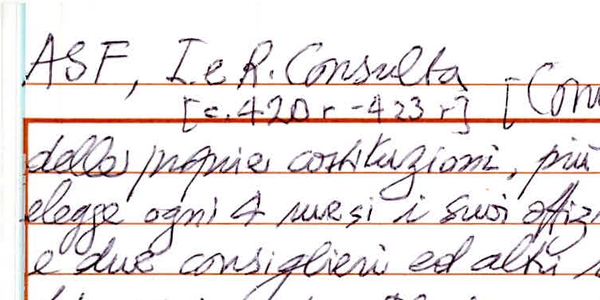 ASF, I e R. Consulta
[c. 420 r - 423 r] [Con
delle proprie costituzioni, più
elegge ogni 4 mesi i suoi offiz
e due consiglieri ed altri